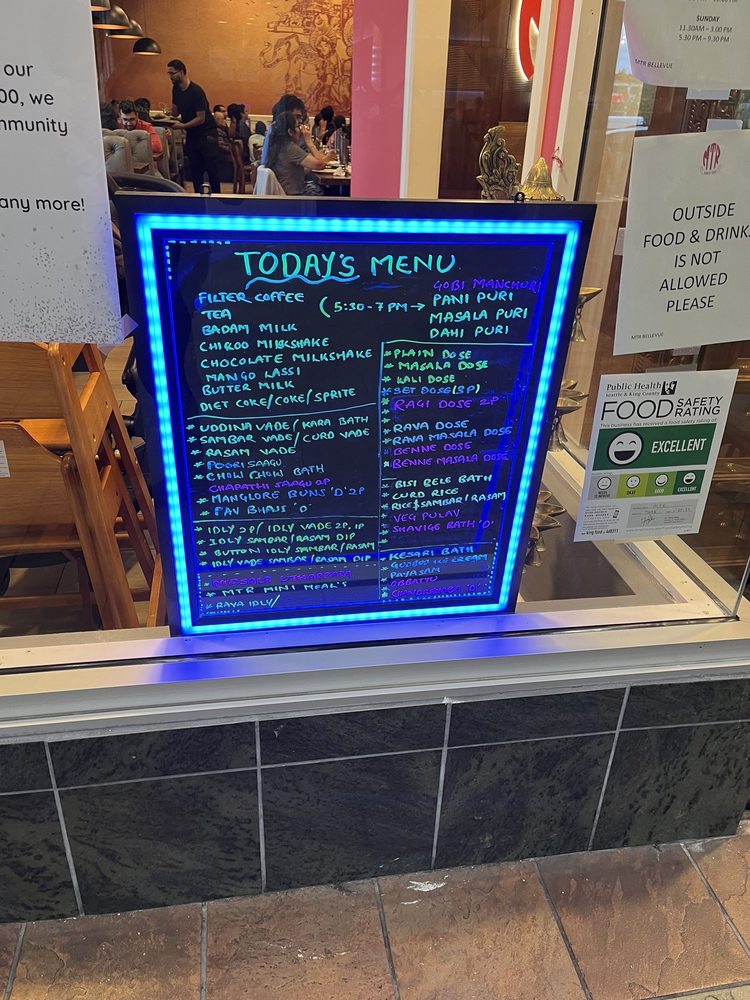 our
00, we
mmunity
any more!
SUNDAY
11.30AM – 3.00 PM
5.30 PM – 9.30 PM
MTR BELLEVUE
MTR
OUTSIDE
FOOD & DRINK
IS NOT
ALLOWED
PLEASE
MTR BELLEVUE
Public Health
Seattle & King County
FOOD SAFETY
RATING
This business has received a food safety rating of:
EXCELLENT
OKAY
GOOD
EXCELLENT
TODAY'S MENU
FILTER COFFEE
TEA
BADAM MILK
CHIKOO MILKSHAKE
CHOCOLATE MILKSHAKE
MANGO LASSI
BUTTER MILK
DIET COKE/COKE/SPRITE
(5:30-7PM→
GOBI MANCHURI
PANI PURI
MASALA PURI
DAHI PURI
* UDDINA VADE/KARA BATH
* SAMBAR VADE/CURD VADE
* RASAM VADE
* POORI SAAGU
* CHOW CHOW BATH
CHAPATHI SAAGU 2P
* MANGLORE BUNS 'D' 2P
* PAV BHAJI 'O'
* IDLY 2P/IDLY VADE 2P,1P
* IDLY SAMBAR/RASAM DIP
* BUTTON IDLY SAMBAR/RASAM
* IDLY VADE SAMBAR/RASAM DIP
* MTR MINI MEAL'S
* RAVA IDLY/
* PLAIN DOSE
* MASALA DOSE
* KALI DOSE
* SET DOSE(3P)
* RAGI DOSE 2P
* RAVA DOSE
* RAVA MASALA DOSE
* BENNE DOSE
* BENNE MASALA DOSE
* BISI BELE BATH
* CURD RICE
* RICE SAMBAR/RASAM
* VEG PULAV
* SHAVIGE BATH 'O'
* KESARI BATH
* GUDBUD ICE CREAM
* PAYASAM
* OBBATTU